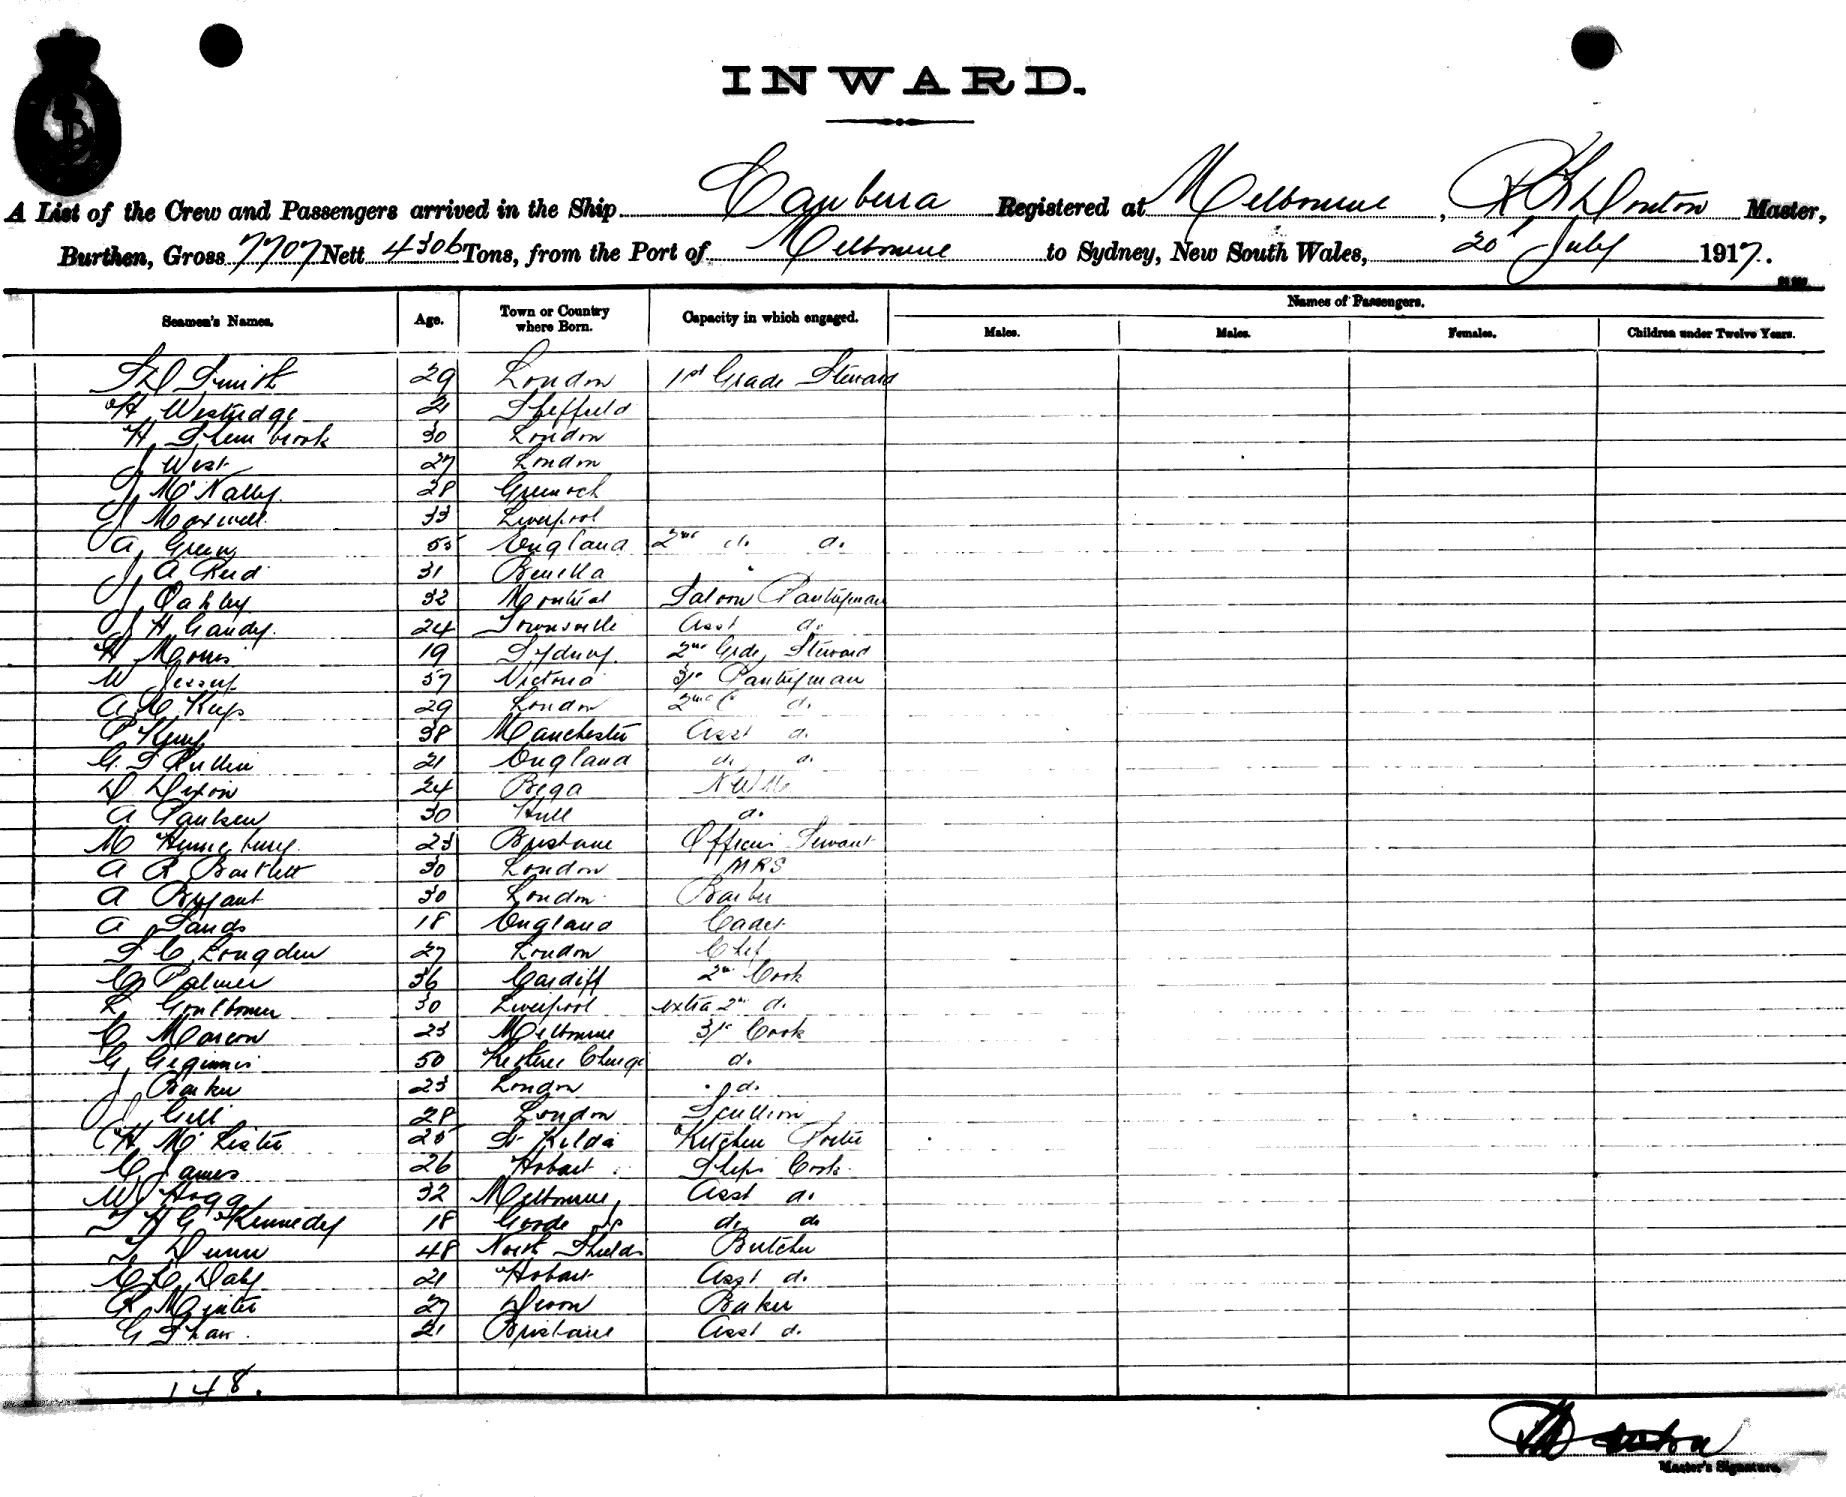 INWARD.
A List of the Crew and Passengers arrived in the Ship Canberra Registered at Melbourne, Master,
Burthen, Gross 7707 Nett 4306 Tons, from the Port of Melbourne to Sydney, New South Wales, 20 July 1917.
Names of Passengers.
Seamen's Names. Age. Town or Country where Born. Capacity in which engaged. Males. Males. Females. Children under Twelve Years.
S D Smith 29 London 1st Grade Steward
H Westridge 21 Sheffield
H 30 London
J West 27 London
J McNally 28 Greenock
J Maxwell 33 Liverpool
A Green 55 England 2nd do. do.
J A Reid 31 Benella
J Oakley 32 Montreal Saloon Pantryman
J H Gandy. 24 Townsville Asst do.
H Morris 19 Sydney. 2nd Grde Steward
W Jessup 57 Victoria 3rd Pantryman
A 29 London 2nd C do.
P Kemp 38 Manchester Asst do.
G S Pullen 21 England do. do.
D Dixon 24 Bega
A Paulsen 30 Hull do.
M 23 Brisbane Officers Servant
A R Bartlett 30 London MRS
A Bryant 30 London Barber
A Sands 18 England Cadet
S C Longden 27 London Chef
G Palmer 36 Cardiff 2nd Cook
L Goulbourn 30 Liverpool extra 2nd do.
C Marcon 23 Melbourne 3rd Cook
G 50 do.
J Barker 23 London do.
J Gill 28 London Scullion
H McLister 25 St Kilda Kitchen Porter
C James 26 Hobart Ships Cook
W Hogg 32 Melbourne Asst do.
H G Kennedy 18 do. do.
T Dunn 48 North Shields Butcher
C C Daly 21 Hobart Asst do.
R 27 Devon Baker
G Shaw 21 Brisbane Asst do.
148.
Master's Signature.